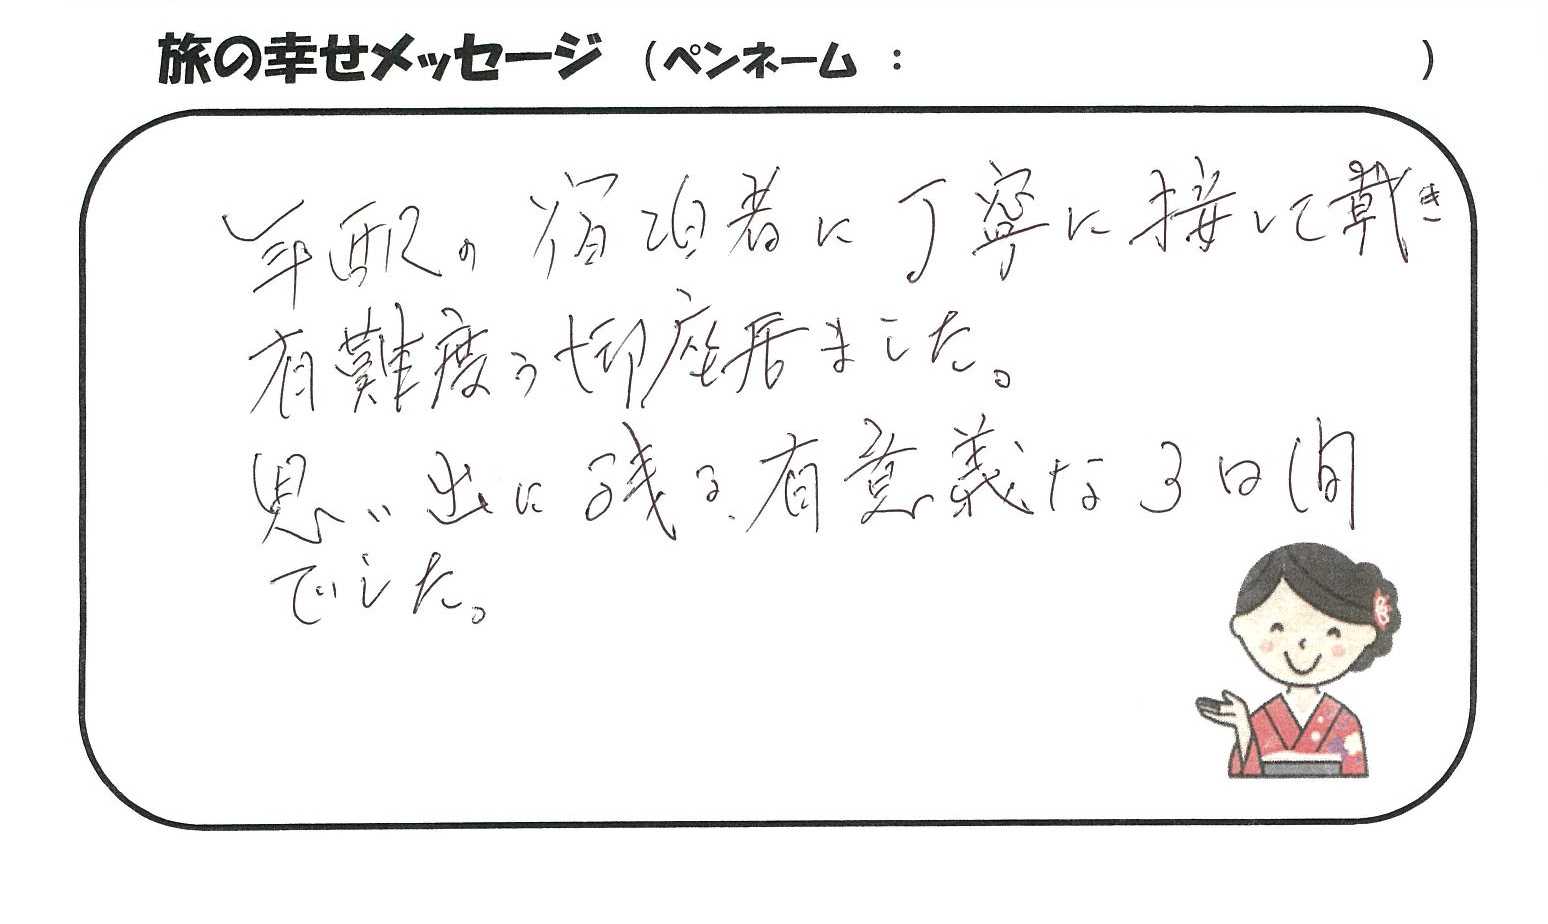 旅の幸せメッセージ (ペンネーム : )
年配の宿泊者に丁寧に接して載き
有難度う御座居ました。
思い出に残る、有意義な3日間
でした。